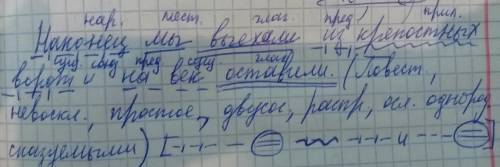 нар. мест. глаг. пред. прил.
Наконец мы выехали из крепостных
сущ. союз пред сущ. глаг
ворот и на век оставили. (Повест.,
невоскл., простое, двусос., распр., осл. однород
сказуемыми)